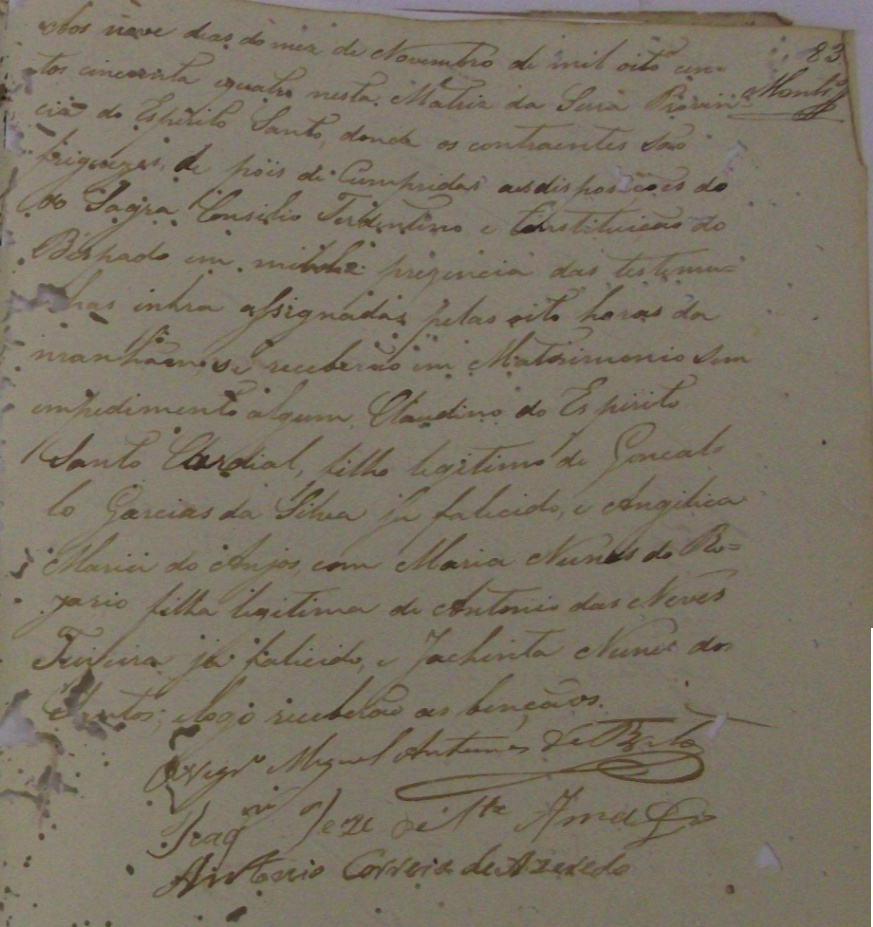 83
Aos nove dias do mez de Novembro de mil oito cen-
tos cincoenta equatro nesta Matriz da Serra Provin-
cia do Espirito Santo, donde os contraentes são
friguezes, de pois de Cumpridas as disposicoes do
do Sagra Consilio Tredentino e Constituicão do
Bispado em minha prezencia das testemu-
nhas infra assignadas pelas oito horas da
manhãm, se receberão em Matrimonio sem
empedimento algum, Claudino do Espirito
Santo Cardial, filho legitimo de Goncal-
lo Garcias da Silva ja falicido, e Angelica
Maria do Anjos, com Maria Nunes do Ro=
zario filha legitima de Antonio das Neves
Teixeira ja falicido, e Jachinta Nunes dos
Santos, elogo receberão as bencãos.
O Vigr.º Miguel Antunes de Brito
Joaq.m Jose de S.ta
Antonio Correia de Azeredo